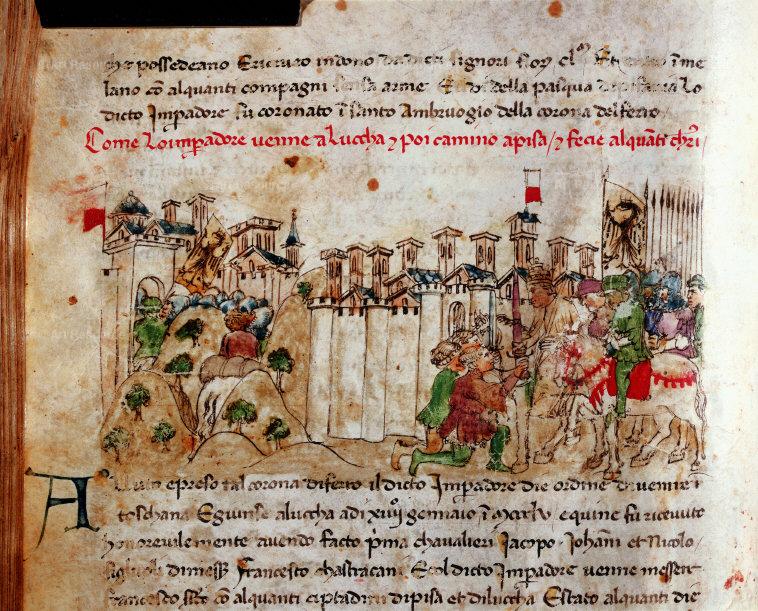 che possedeano Ericevero indono dadicti signori fiory cl⁰ Et
lano cō alquanti compagni senza arme Et dì della pasqua Lo
dicto Impadore fu coronato ī santo Ambruogio della corona del ferro
Come Loimpadore venne a Luccha ⁊ poi camino apisa / ⁊ fecie alquāti
preso tal corona diferro il dicto Impadore die ordine di venire ī
toschana Egiunse aluccha adi gennaio ī equine fu ricevuto
honorevile mente avendo facto p̄ma chavalieri Jacopo Johāni et Nicolo
figliuoli dimess Francesco chastracani Et col dicto Impadore venne messer
francesco cō alquanti ciptadini dipisa et diluccha Estato alquanti die